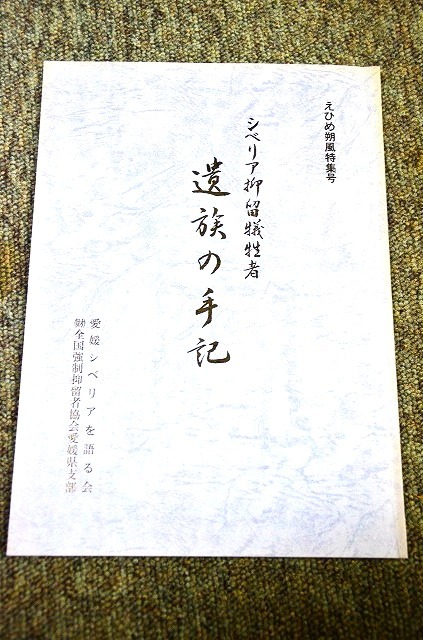 えひめ朔風特集号
シベリア抑留犠牲者
遺族の手記
愛媛シベリアを語る会
㈶全国強制抑留者協会愛媛県支部